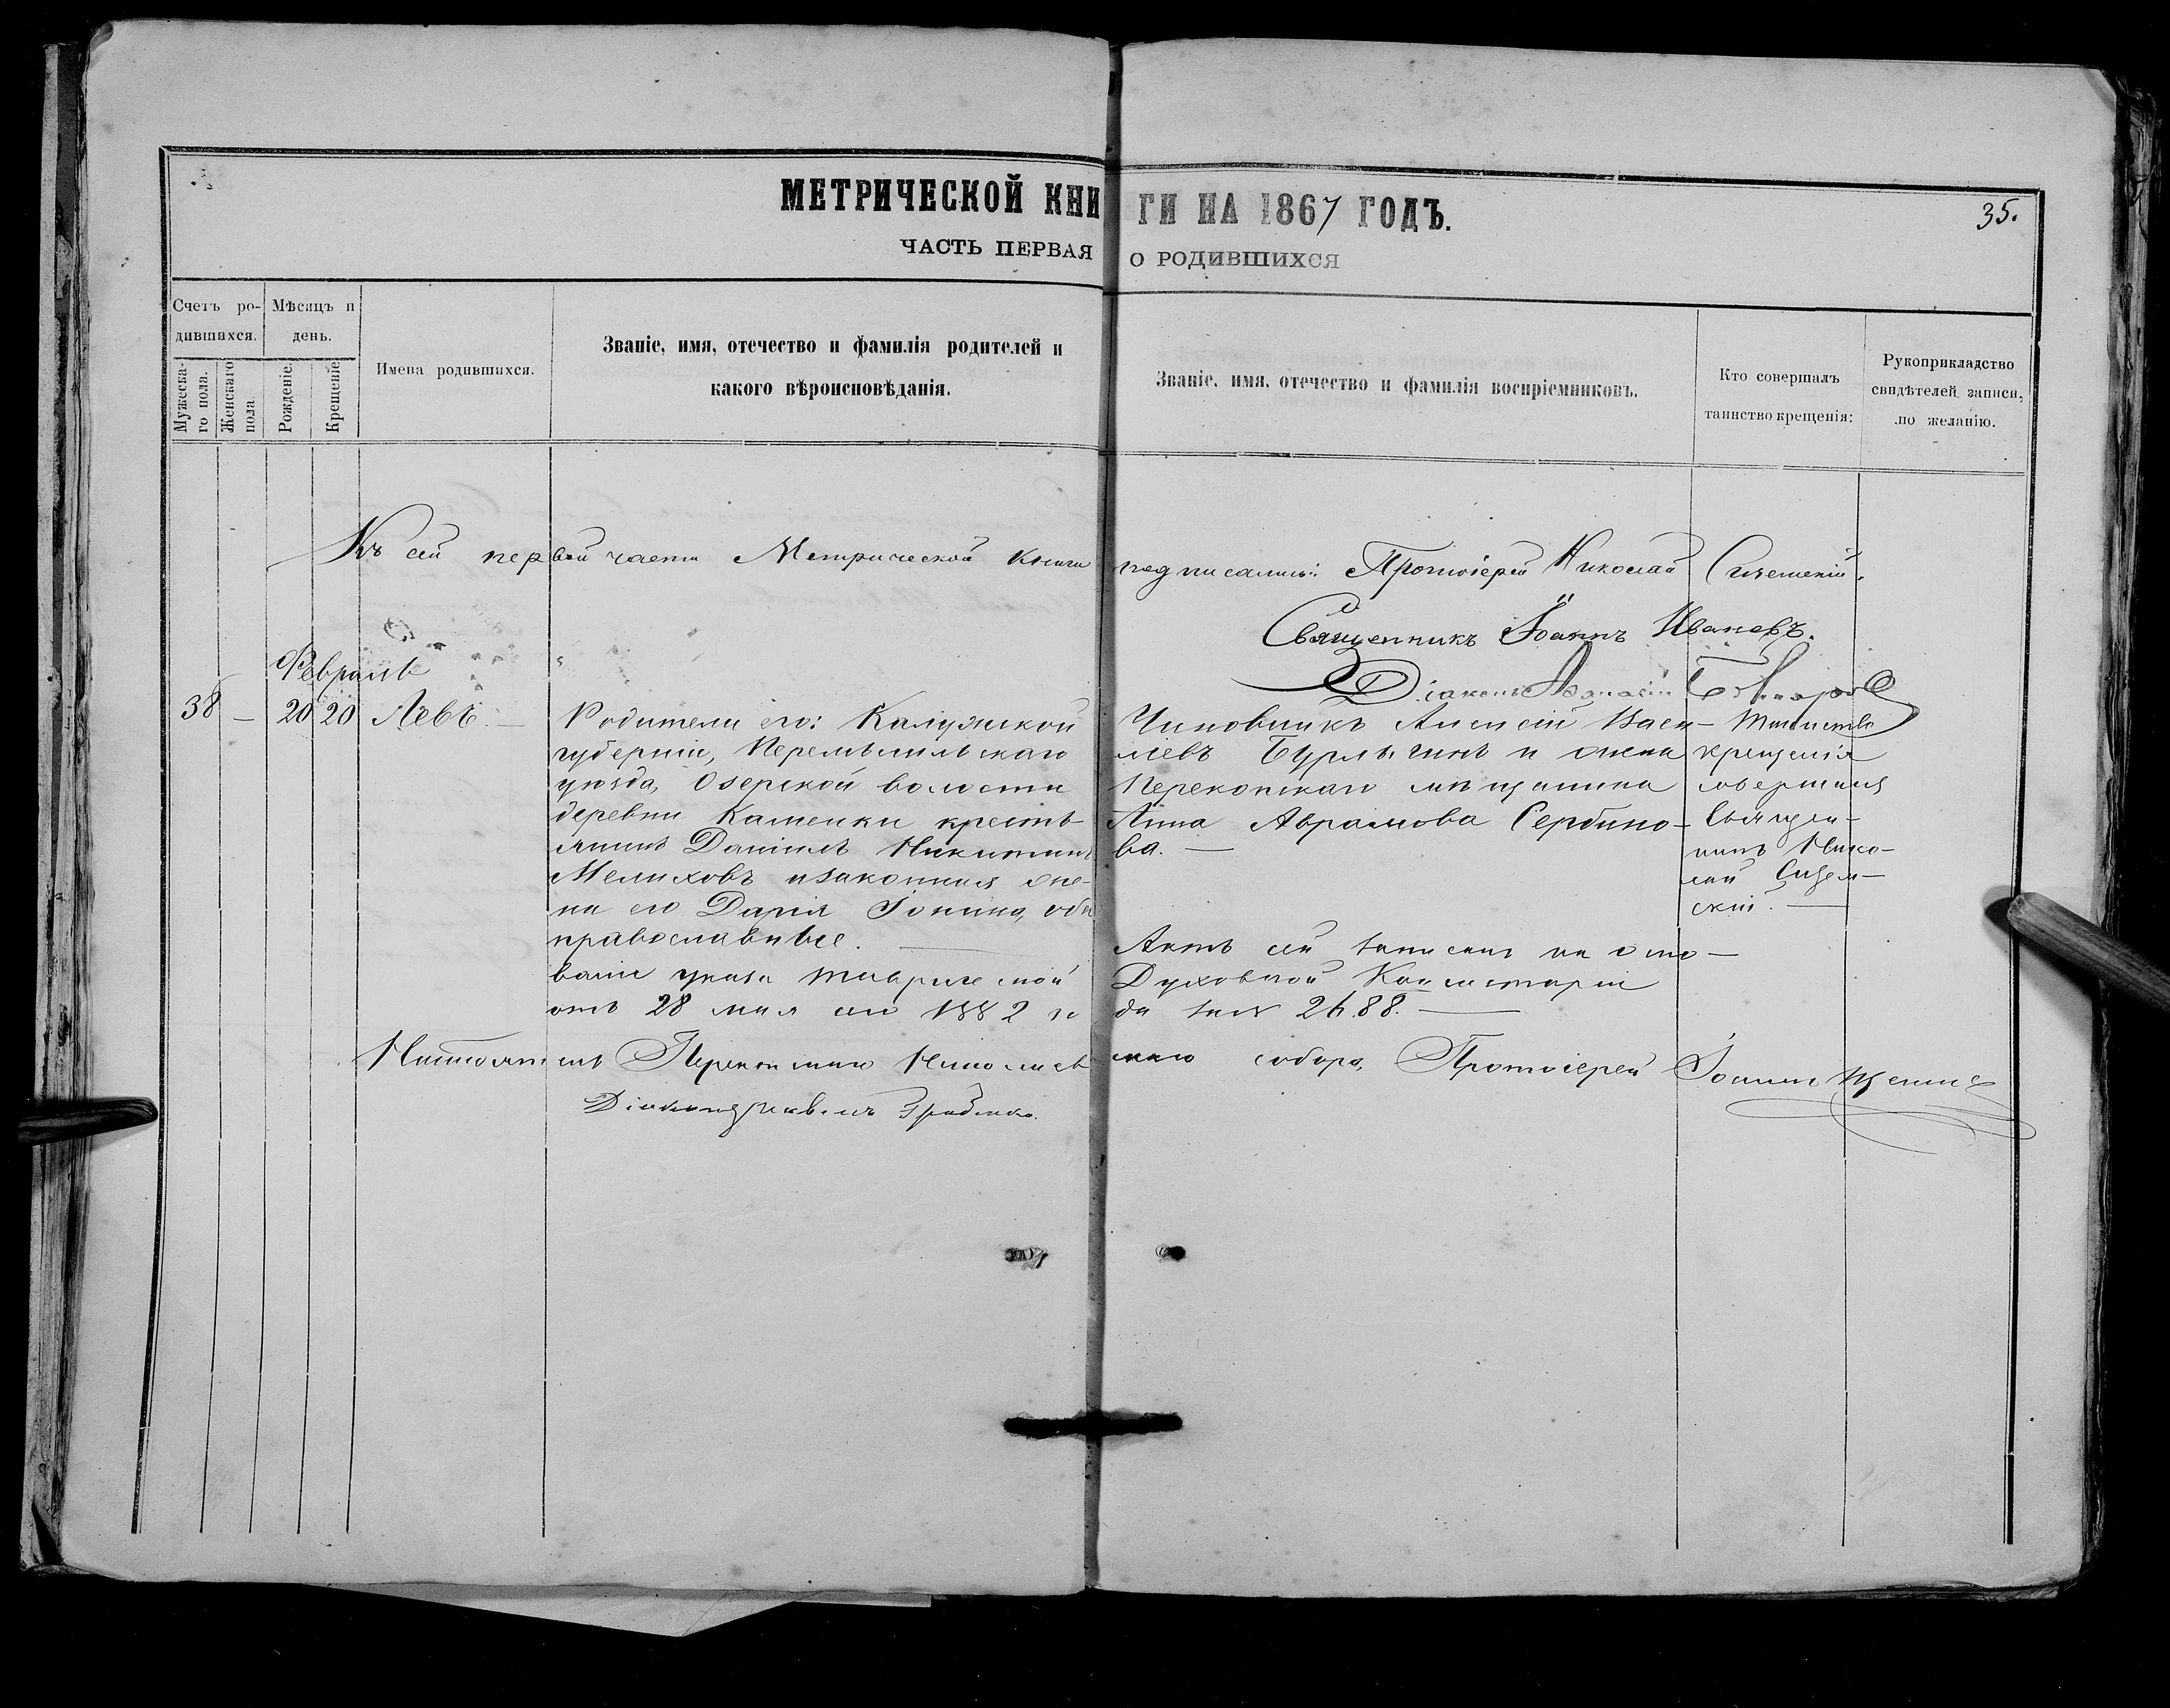 МЕТРИЧЕСКОЙ КНИГИ НА 1867 ГОДЪ.
35.
ЧАСТЬ ПЕРВАЯ О РОДИВШИХСЯ
Счетъ ро-
дившихся.
Мужеска-
го пола.
Женскаго
пола
Мѣсяцъ и
день.
Рожденіе.
Крещеніе
Имена родившихся.
Званіе, имя, отечество и фамилія родителей и
какого вѣроисповѣданія.
Званіе, имя, отечество и фамилія воспріемниковъ.
Кто совершалъ
таинство крещенія:
Рукоприкладство
свидѣтелей записи,
по желанію.
Къ сей первой части Метрической книги подписались: Протоіерей Николай
Священникъ Іоаннъ Ивановъ.
Діаконъ
Февраль
38 — 20 20 Левъ. —
Родители его: Калужской
губерніи, Перемышльскаго
уѣзда, Озерской волости
деревни Каменки кресть-
янинъ Даніилъ Никитинъ
Мелиховъ и законная же-
на его Дарія Іонина, оба
православные. —
Чиновникъ Алексій Васи-
льевъ Бурлыгинъ и жена
Перекопскаго мѣщанина
Анна Аврамова Сербино-
ва. —
Таинство
крещенія
совершилъ
Священ-
никъ Нико-
лай
скій. —
Актъ сей записанъ на осно-
ваніи указа Таврической Духовной Консисторіи
отъ 28 мая сего 1882 года за № 2688. —
Настоятель Перекопскаго Николаев скаго собора, Протоіерей Іоаннъ
Діаконъ